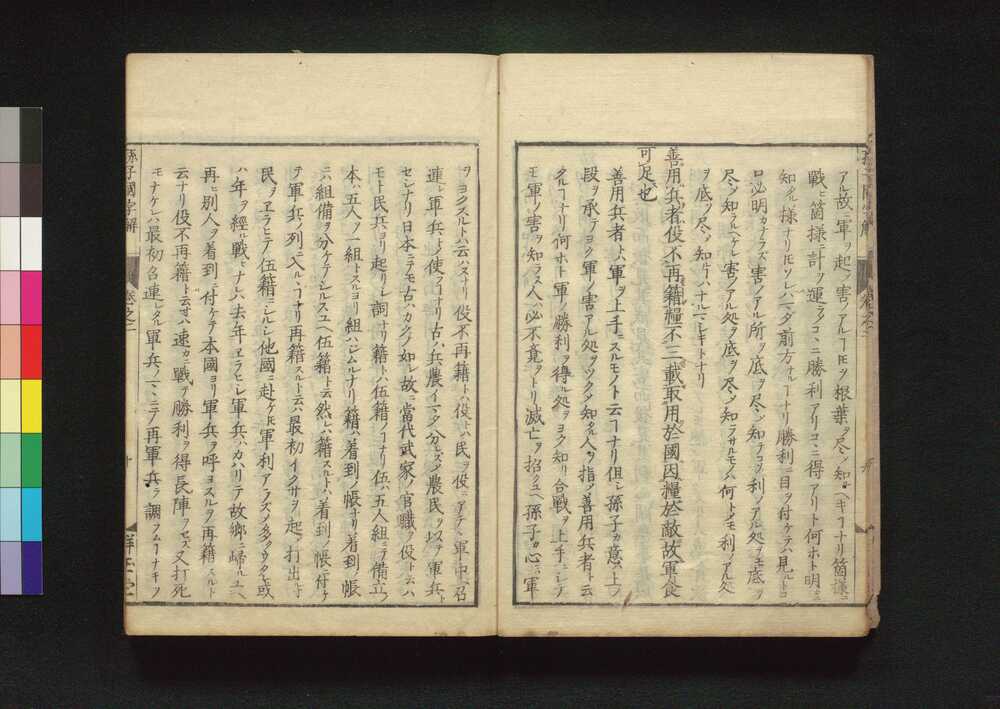 アル故軍ヲ起ノ害ノアルヿ𪜈ヲ根葉ヲ尽ノ知ヘキヿナリ箇様ニ
戦ヒ箇様ニ計ヲ運ラソコヽニ勝利アリコヽニ得アリト何ホト明ニ
知タル様ナリ𪜈ソレハマダ前方ナルヿナリ勝利ニ目ヲ付ケテハ見ルトコ
ロ必明カナラズ害ノアル所ヲ底ヲ尽ノ知テコソ利ノアル処ヲモ底ヲ
尽ノ知ラルヘケレ害ノアル処ヲ底ヲ尽ノ知ラサルモノハ何トノモ利ノアル処
ヲ底ヲ尽ノ知ヿハナニシキトナリ
善用兵者役不再籍糧不三載取用於國因糧於敵故軍食
可足也
善用兵者トハ軍ヲ上手ニスルモノト云ヿナリ但シ孫子カ意ハ上ノ
段ヲ承テヨク軍ノ害アル処ヲツクノ知タル人ヲ指ノ善用兵者ト云
タルヿナリ何ホト軍ノ勝利ヲ得ル処ヲヨク知リ合戦ヲ上手ニノテ
モ軍ノ害ヲ知ラヌ人ハ必不意ヲトリ滅亡ヲ招クユヘ孫子カ心ニハ軍
ヲヨクスルトハ云ハヌナリ役不再籍トハ役トハ民ヲ役ニアテヽ軍中ヘ召
連レ軍兵ト使フヿナリ古ハ兵農イマタ分レスノ農民ヲ以テ軍兵ト
セシナリ日本ニテモ古ハカクノ如シ故ニ當代武家ノ官職ヲ役ト云ハ
モト民兵ヨリ起リシ詞ナリ籍トハ伍籍ノヿナリ伍ハ五人組ニテ備立ノ
本ハ五人ノ一組トスルヨリ組ハシムルナリ籍ハ着到ノ帳ナリ着到ノ帳
ニハ組備ヲ分ケテシルスユヘ伍籍ト云然レハ籍スルトハ着到ノ帳ニ付ケ
テ軍兵ノ列ニ入ルヽヿナリ再籍スルト云ハ最初イクサヲ起ノ打出ルトキ
民ヲヱラヒテ伍籍ニシルシ他國ニ赴ケ𪜈軍利アラスノ多クウタレ或
ハ年ヲ經ル戦トナレハ去年ヱラヒシ軍兵ハカハリテ故郷ニ歸ルユヘ
再ヒ別人ヲ着到ニ付ケテ本國ヨリ軍兵ヲ呼ヨスルヲ再籍スルト
云ナリ役不再籍ト云ヿハ速カニ戦テ勝利ヲ得長陣ヲセズ又打死
モナケレハ最初召連レタル軍兵ノミニテ再軍兵ヲ調フルヿナキヲ
孫子國字解